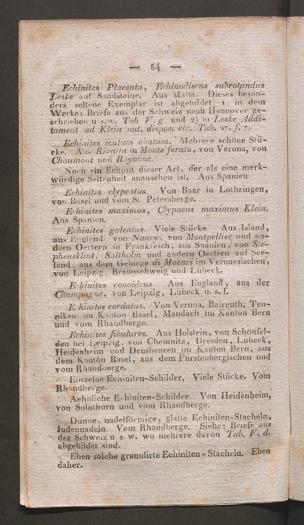 — 64 —
Echinites Placenta, Echinodiscus subrotundus
Leske auf Sandsteine. Aus Malta. Dieses beson-
ders seltene Exemplar ist abgebildet 1 in dem
Werke: Briefe aus der Schweiz nach Hannover ge-
schrieben u. s. w. Tab V. f. und 2) in Leske Addi-
tament ad Klein nat. dispos. etc. Tab.
Echinites scutum ovatum. Mehrere schöne Stü-
cke. Aus Rivalta in Monte ferato, von Verona, von
Chaumont und Bayonne.
Noch ein Echinit dieser Art, der als eine merk-
würdige Seltenheit anzusehen ist. Aus Spanien
Echinites clypeatus. Von Baar in Lothringen,
von Basel und vom St. Petersberge.
Echinites maximus, Clypaeus maximus Klein.
Aus Spanien.
Echinites galeatus. Viele Stücke Aus Island,
aus England von Nancy, von Montpellier und an-
deren Oertern in Frankreich, aus Spanien, von Ste-
phensklint, Saltholm und andern Oertern auf See-
land, aus dem Gebirge di Mazari im Veronesischen,
von Leipzig, Braunschweig und Lübeck.
Echinites conoideus Aus England, aus der
Champagne, von Leipzig, Lübeck u. s. f.
Echinites cordatus. Von Verona, Baireuth, Ten-
niken im Kanton Basel, Mandach im Kanton Bern
und vom Rhandberge.
Echinites fibulares. Aus Holstein, von Schönfel-
den bei Leipzig, von Chemnitz, Dresden, Lübeck,
Heidenheim und Densbeuren im Kanton Bern, aus
dem Kanton Basel, aus dem Fürstenbergischen und
vom Rhandberge.
Einzelne Echiniten-Schilder. Viele Stücke. Vom
Rhandberge.
Aehnliche Echiniten-Schilder. Von Heidenheim,
von Solothurn und vom Rhandberge.
Dünne, nadelförmige, glatte Echiniten-Stacheln,
Judennadeln. Vom Rhandberge. Siehe: Briefe aus
der Schweiz u. s. w. wo mehrere davon Tab. V. d.
abgebildet sind.
Eben solche granulirte Echiniten-Stacheln. Eben
daher.